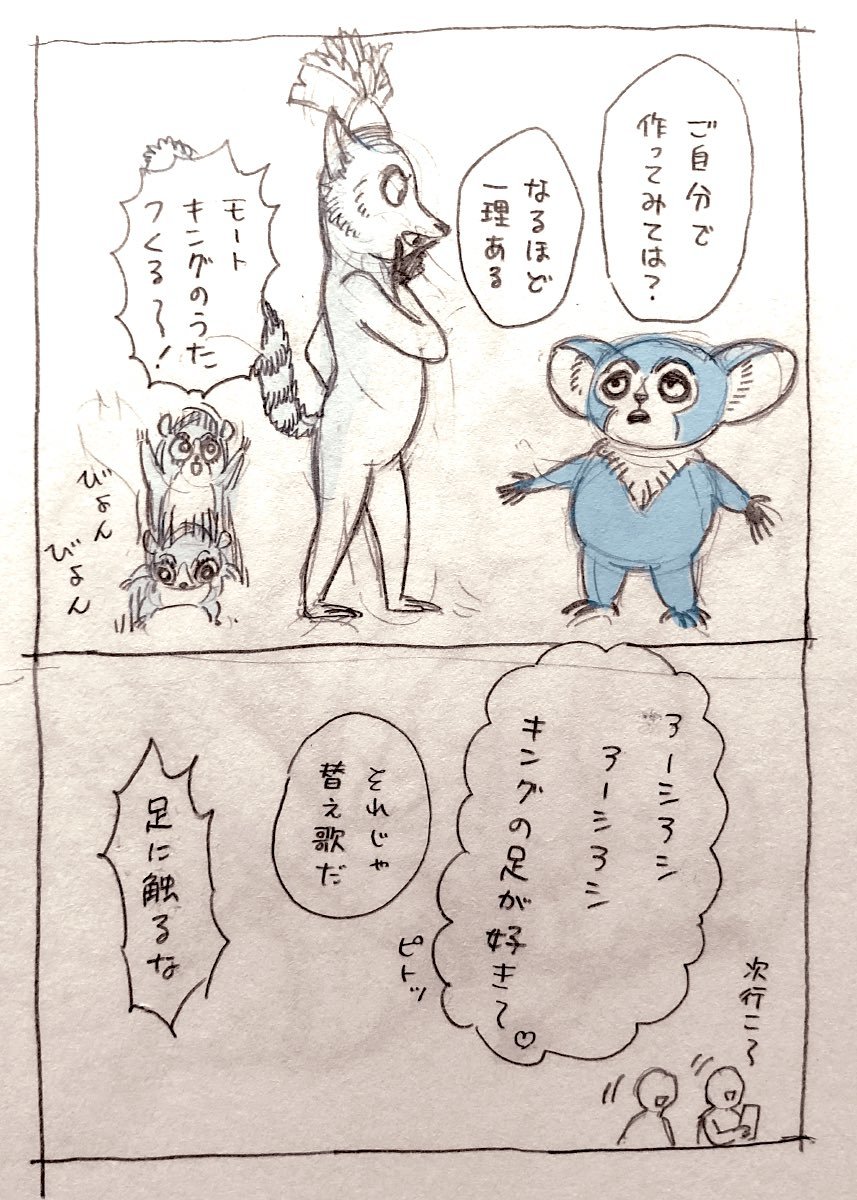 ご自分で
作ってみては？
なるほど
一理ある
モート
キングのうた
つくる〜！
びよん
びよん
アーシアシ
アーシアシ
キングの足が好きで♡
それじゃ
替え歌だ
ピトッ
足に触るな
次行こう